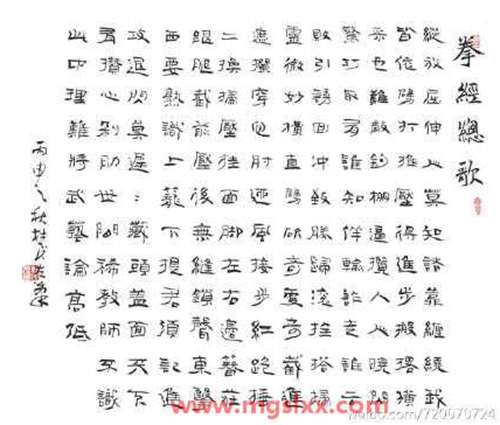 拳經總歌
縱放屈伸人莫知諸靠纏繞我
皆依劈打推壓得進步搬撂橫
采也難敵鉤掤逼攬人人曉閃
驚巧取有誰知佯輸詐走誰云
敗引誘回沖致勝歸滾拴搭掃
靈微妙橫直劈砍奇更奇截進
遮攔穿心肘迎風接步紅炮捶
二換掃壓掛面腳左右邊簪莊
跟腿截前壓後無縫鎖聲東擊
西要熟識上籠下提君須記進
攻退閃莫遲遲藏頭蓋面天下
有攢心剁肋世間稀教師不識
此中理難將武藝論高低
丙申之秋
www.mgslxx.com
weibo.com/720070724